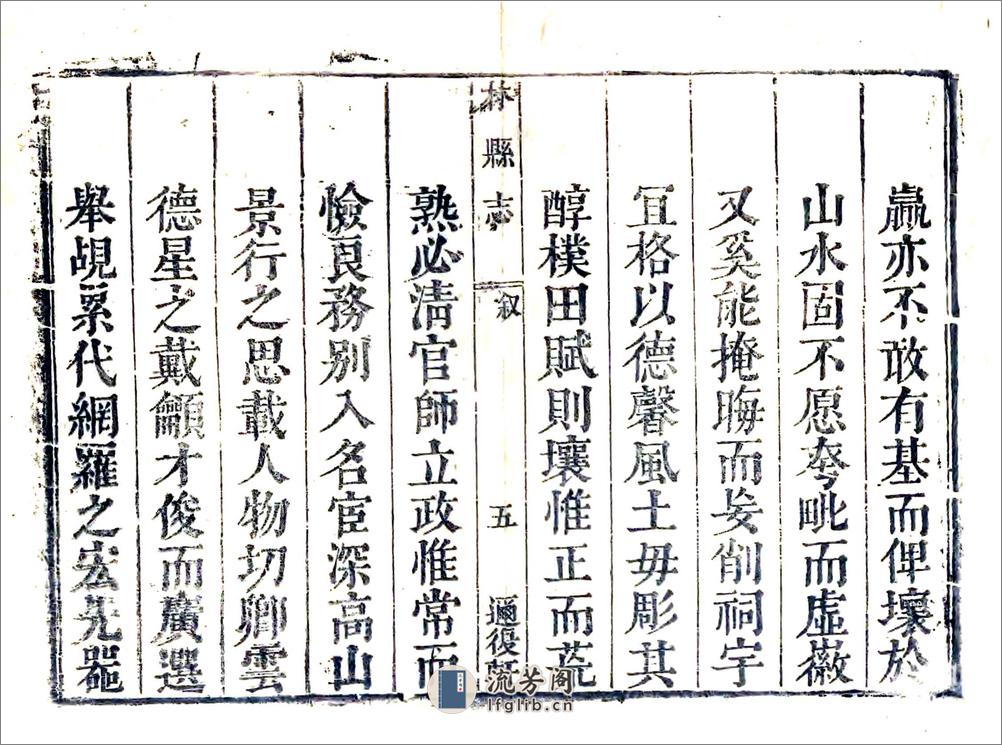 羸亦不敢有基而俾壞於
山水固不愿夸眦而虛薇
又奚能掩晦而妄削祠宇
冝格以德馨風土毋彫其
醇樸田賦則壤惟正而荒
林縣志 叙 五 邇復
熟必淸官師立政惟常而
憸良務别入名宦深高山
景行之思載人物切卿雲
德星之戴籲才俊而廣選
舉覘累代網羅之宏先
流芳阁
lfglib.cn